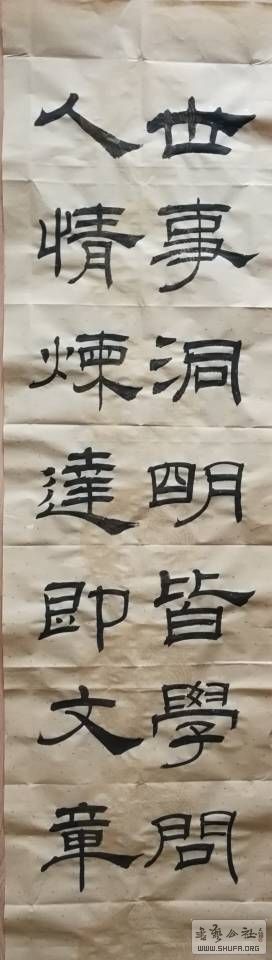 世事洞明皆學問
人情煉達即文章
书艺公社
WWW.SHUFA.ORG